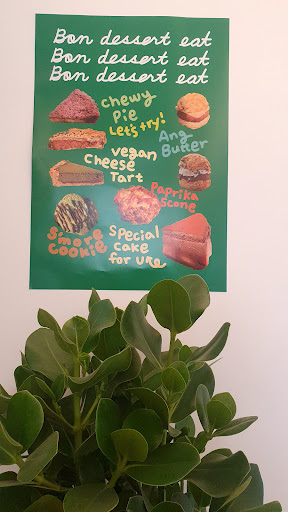 Bon dessert eat
Bon dessert eat
Bon dessert eat
chewy
Pie
Let's try!
Ang
Butter
vegan
Cheese
Tart
Paprika
Scone
S'more
Cookie
Special
Cake
for U